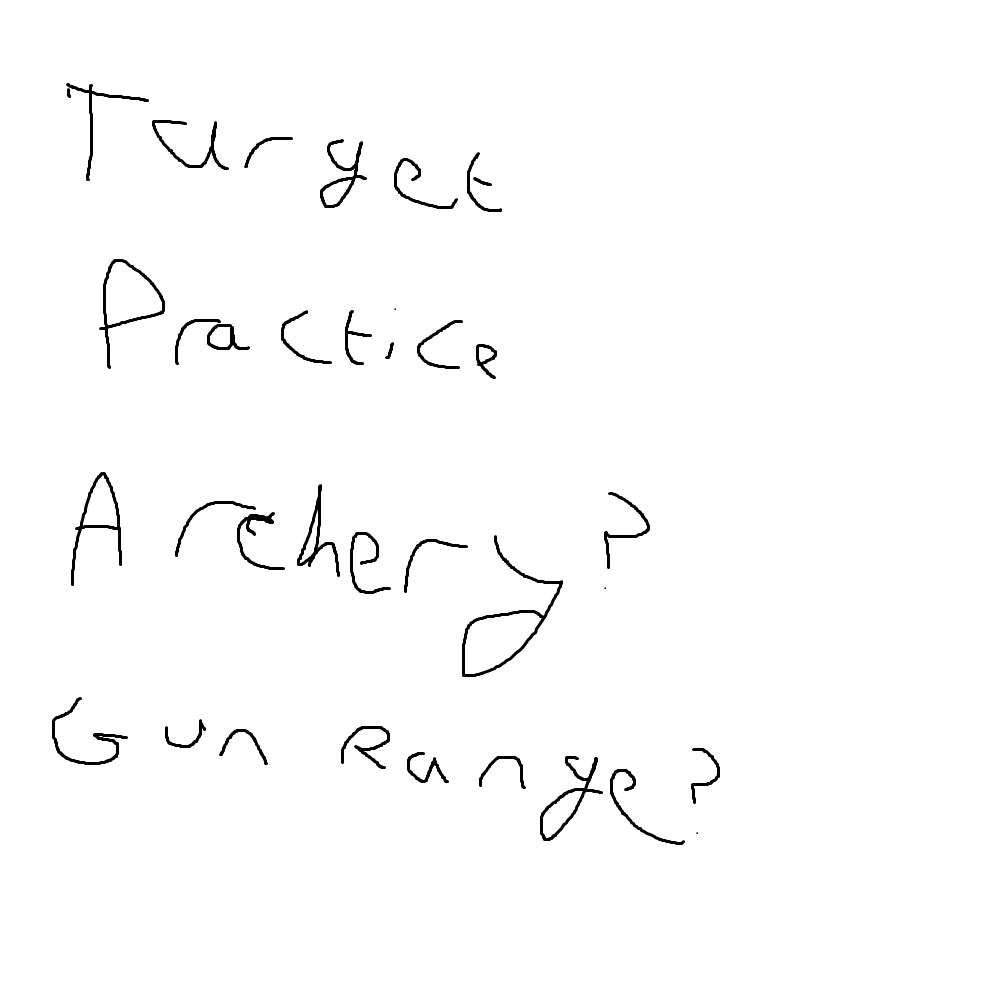 Target
Practice
Archery?
Gun Range?